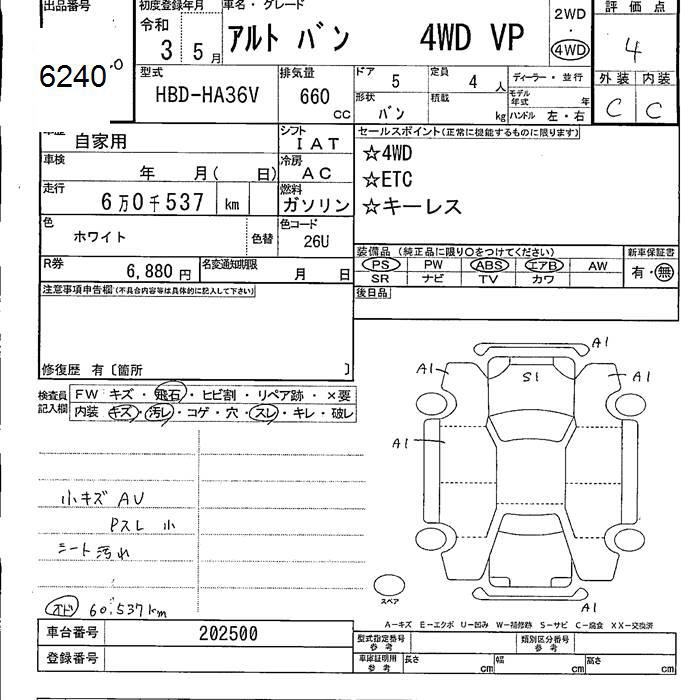 出品番号 初度登録年月 車名・グレード 評価点
令和 3 5月 アルト バン 4WD VP 2WD 4WD 4
6240 型式 排気量 ドア 5 定員 4人 ディーラー・並行 外装 内装
HBD-HA36V 660 CC 形状 バン 積載 kg モデル年式 年 ハンドル 左・右 C C
自家用 シフト IAT セールスポイント(正常に機能するものに限ります)
車検 年 月( 日) 冷房 AC ☆4WD
走行 6万0千537 km 燃料 ガソリン ☆ETC
☆キーレス
色 ホワイト 色替 色コード 26U
装備品 (純正品に限り○をつけてください) 新車保証書
R券 6,880円 名変通知期限 月 日 PS PW ABS エアB AW 有・無
SR ナビ TV カワ
注意事項申告欄(不具合内容等は具体的に記入して下さい) 後日品
修復歴 有〔箇所 〕
検査員記入欄 FW キズ・飛石・ヒビ割・リペア跡・×要
内装 キズ・汚レ・コゲ・穴・スレ・キレ・破レ
A1
A1 S1 A1
A1
小キズ AU
PスL 小
シート汚れ
オド 60.537km
スペア
A1
A－キズ E－エクボ U－凹み W－補修跡 S－サビ C－腐食 XX－交換済
車台番号 202500 型式指定番号 参考 類別区分番号 参考
登録番号 車庫証明用 参考 長さ cm 幅 cm 高さ cm